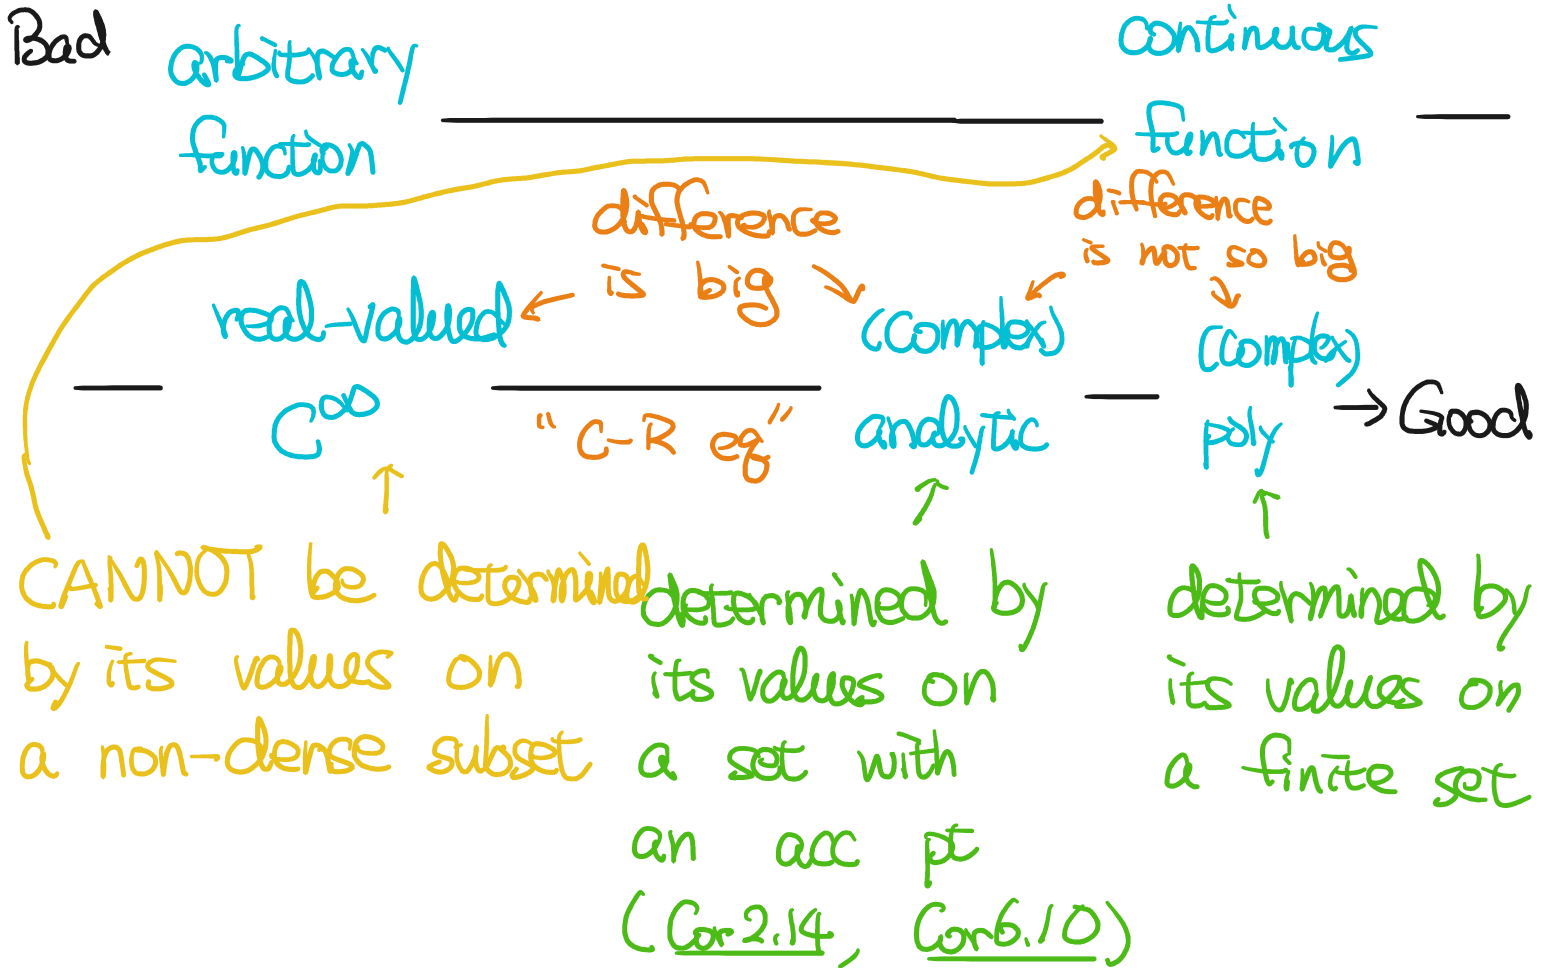 Bad
arbitrary
function
continuous
function
difference
is big
difference
is not so big
real-valued
C∞
"C-R eq"
(complex)
analytic
(complex)
poly
Good
CANNOT be determined
by its values on
a non-dense subset
determined by
its values on
a set with
an acc pt
(Cor 2.14, Cor 6.10)
determined by
its values on
a finite set